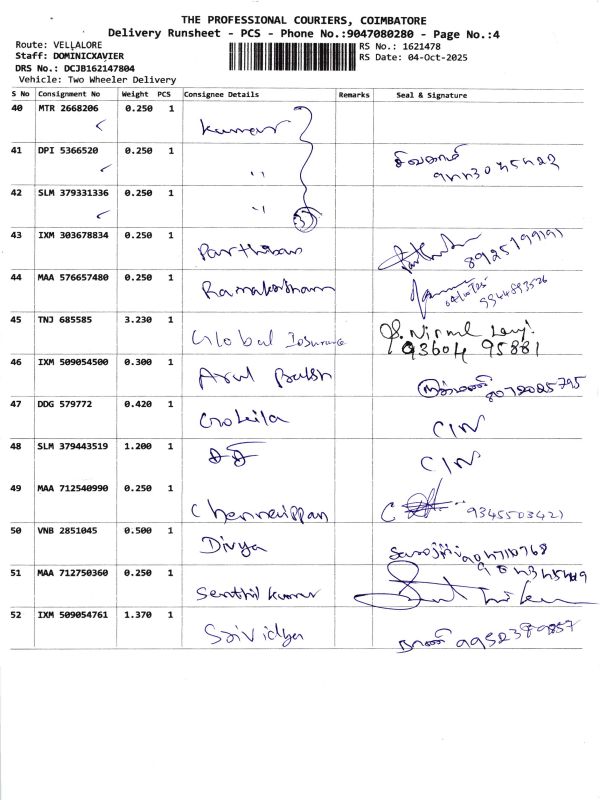 THE PROFESSIONAL COURIERS, COIMBATORE
Delivery Runsheet - PCS - Phone No.:9047080280 - Page No.:4
Route: VELLALORE
Staff: DOMINICXAVIER
DRS No.: DCJB162147804
Vehicle: Two Wheeler Delivery
RS No.: 1621478
RS Date: 04-Oct-2025
S No Consignment No Weight PCS Consignee Details Remarks Seal & Signature
40 MTR 2668206 0.250 1 Kumar
41 DPI 5366520 0.250 1 "
42 SLM 379331336 0.250 1 " 3
43 IXM 303678834 0.250 1 Parthiban 8925199191
44 MAA 576657480 0.250 1 9944893526
45 TNJ 685585 3.230 1 Global Insurance 93604 95881
46 IXM 509054500 0.300 1 Arul 8072025795
47 DDG 579772 0.420 1 Gokila C/N
48 SLM 379443519 1.200 1 C/N
49 MAA 712540990 0.250 1 Chenniappan 9345503421
50 VNB 2851045 0.500 1 Divya Sarojini
51 MAA 712750360 0.250 1 Senthil kumar
52 IXM 509054761 1.370 1 Srividya